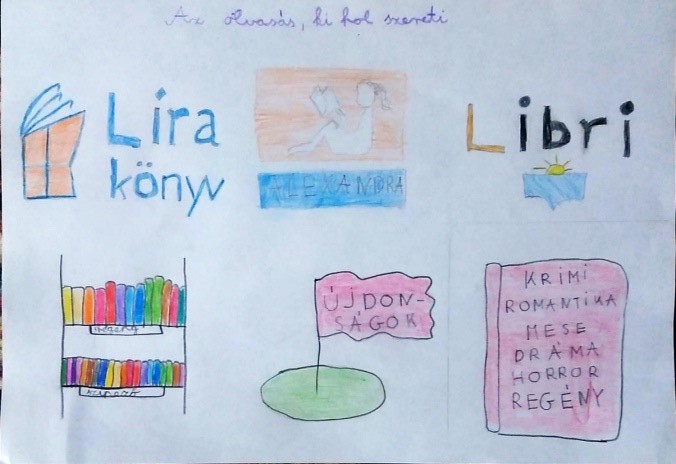 Az olvasás, ki hol szereti
Líra
könyv
ALEXANDRA
Libri
ÚJDON-
SÁGOK
KRIMI
ROMANTIKA
MESE
DRÁMA
HORROR
REGÉNY